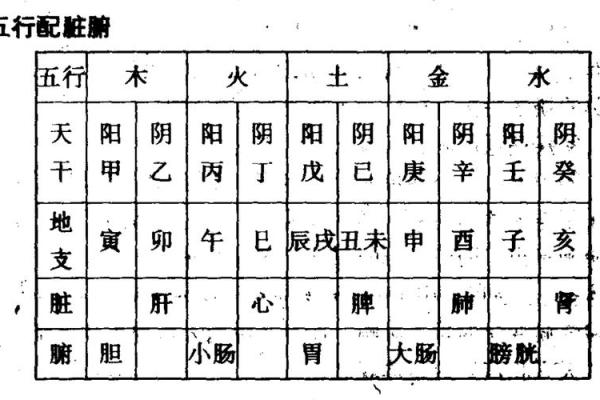 五行配脏腑
五行 木 火 土 金 水
天干 阳甲 阴乙 阳丙 阴丁 阳戊 阴已 阳庚 阴辛 阳壬 阴癸
地支 寅 卯 午 巳 辰戌 丑未 申 酉 子 亥
脏 肝 心 脾 肺 肾
腑 胆 小肠 胃 大肠 膀胱